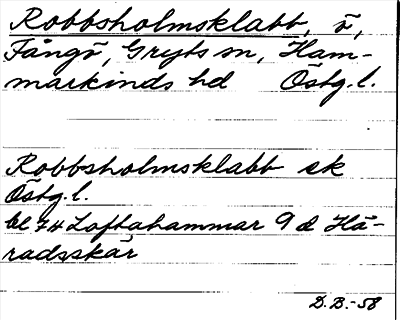 Robbsholmsklabb, ö,
Fångö, Gryts sn, Ham-
markinds hd Östg.l.
Robbsholmsklabb sk
Östg.l.
bl 74 Loftahammar 9 d Hä-
radsskär
D.B.-58